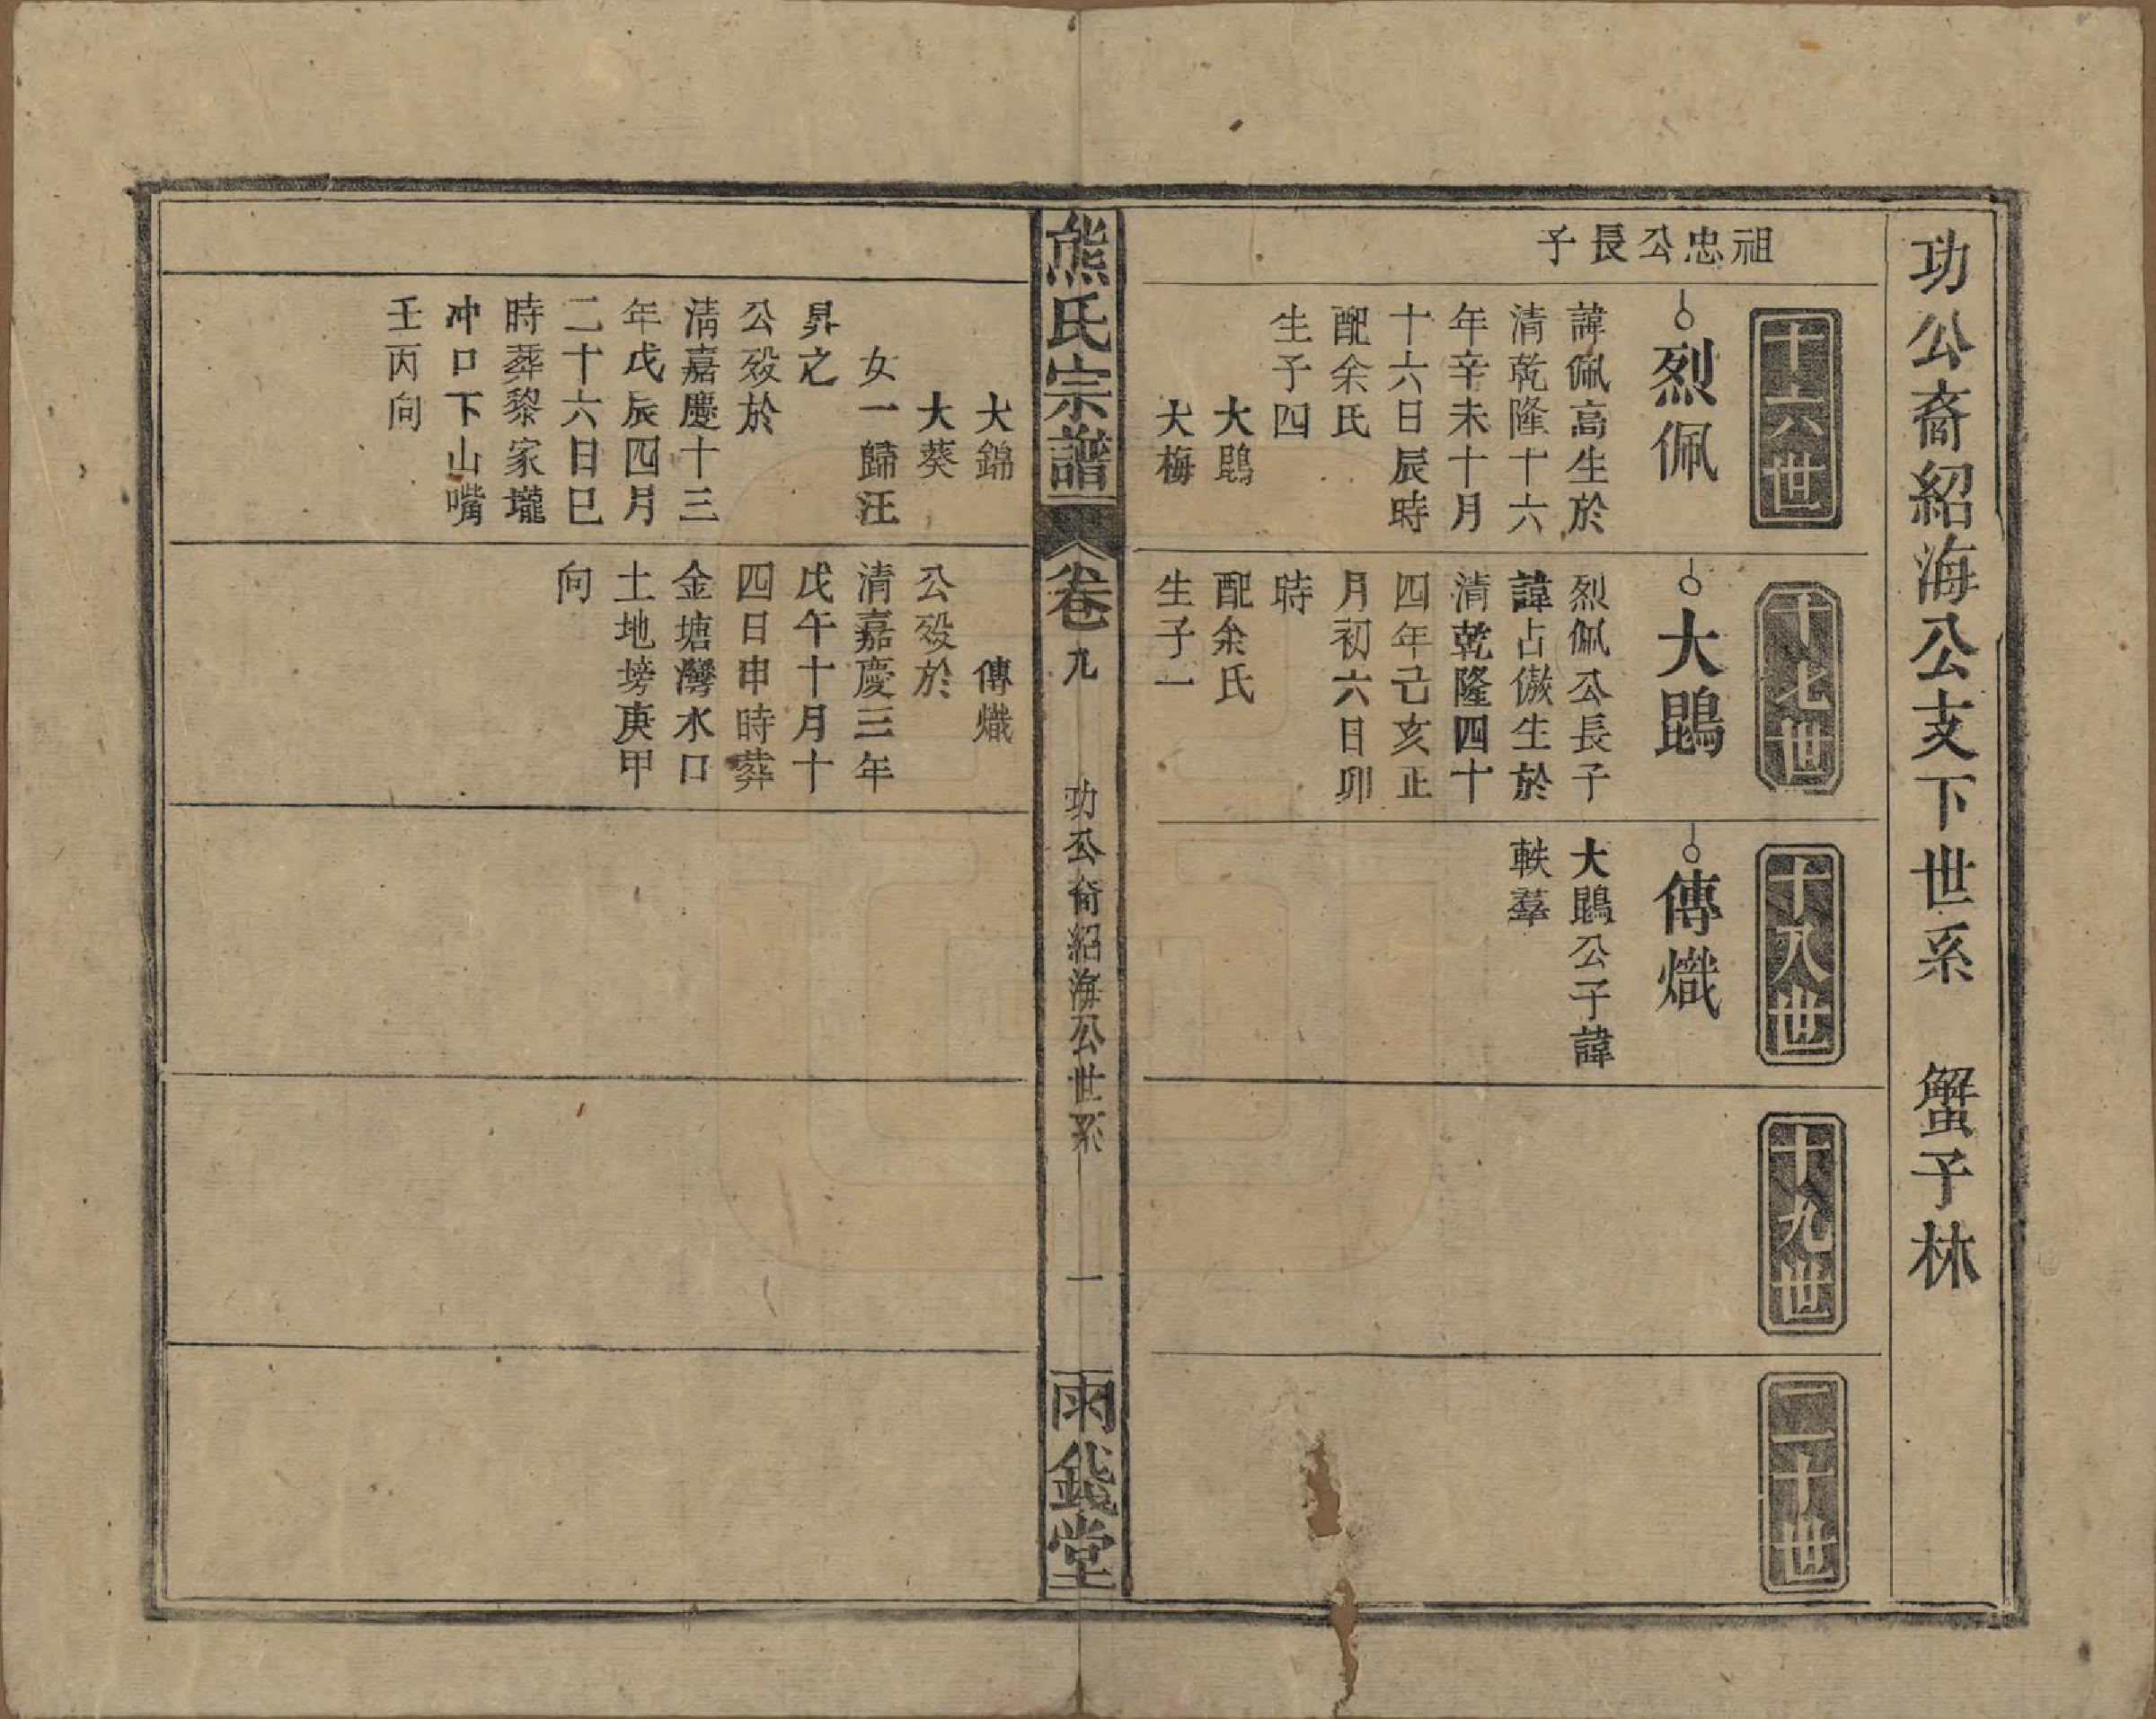 功公裔紹海公支下世系　蟹子林
祖忠公長子
十六世
烈佩
諱佩高生於
清乾隆十六
年辛未十月
十六日辰時
配余氏
生子四
大鵾
大梅
大錦
大葵
女一歸汪
昇之
公歿於
清嘉慶十三
年戊辰四月
二十六日巳
時葬黎家壠
冲口下山嘴
壬丙向
十七世
大鵾
烈佩公長子
諱占傲生於
清乾隆四十
四年己亥正
月初六日卯
時
配余氏
生子一
傳熾
公歿於
清嘉慶三年
戊午十月十
四日申時葬
金塘灣水口
土地塝庚甲
向
十八世
傳熾
大鵾公子諱
軼羣
十九世
二十世
熊氏宗譜
卷九
功公裔紹海公世系
一
雨錢堂